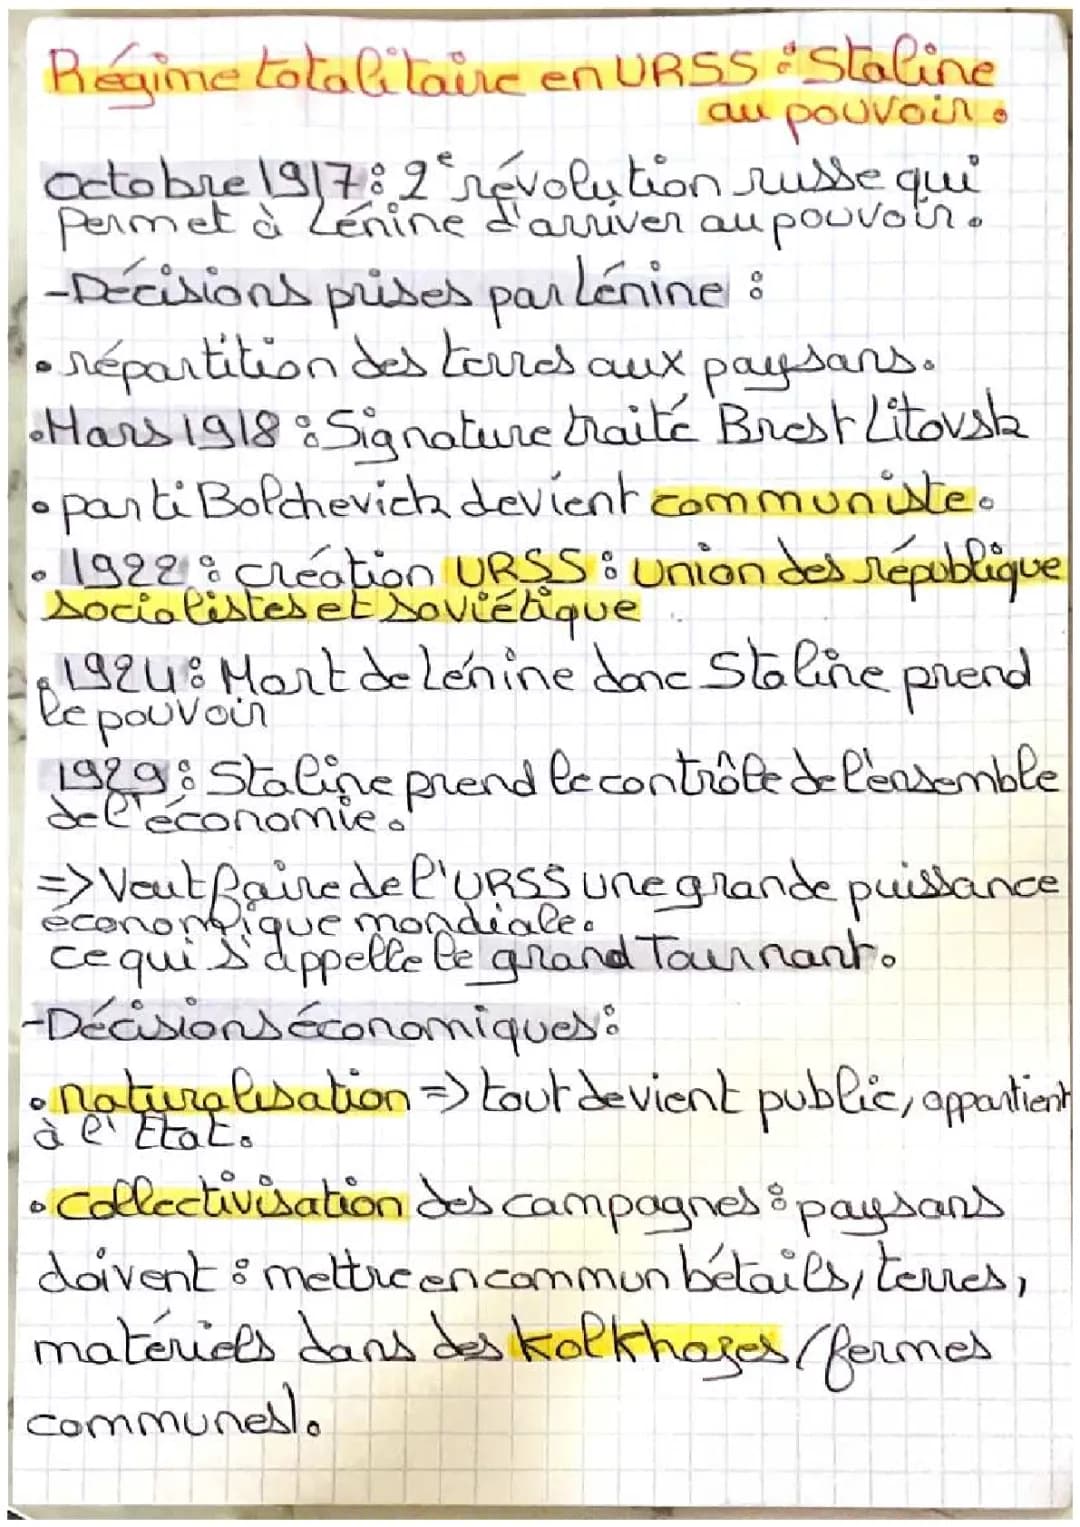 Régime totalitaire en URSS : Staline
au pouvoir.
Octobre 1917 : 2e révolution russe qui
permet à Lénine d'arriver au pouvoir.
-Décisions prises par Lénine :
• répartition des terres aux paysans.
• Mars 1918 : Signature traité Brest Litovsk
• parti Bolchevick devient communiste.
• 1922 : création URSS : Union des république
socialistes et soviétique
• 1924 : Mort de Lénine donc Staline prend
le pouvoir
1929 : Staline prend le contrôle de l'ensemble
de l'économie.
=> Veut faire de l'URSS une grande puissance
économique mondiale.
ce qui s'appelle le grand Tournant.
-Décisions économiques :
• naturalisation => tout devient public, appartient
à l'Etat.
• Collectivisation des campagnes : paysans
doivent : mettre en commun bétails, terres,
matériels dans des kolkhozes (fermes
communes).